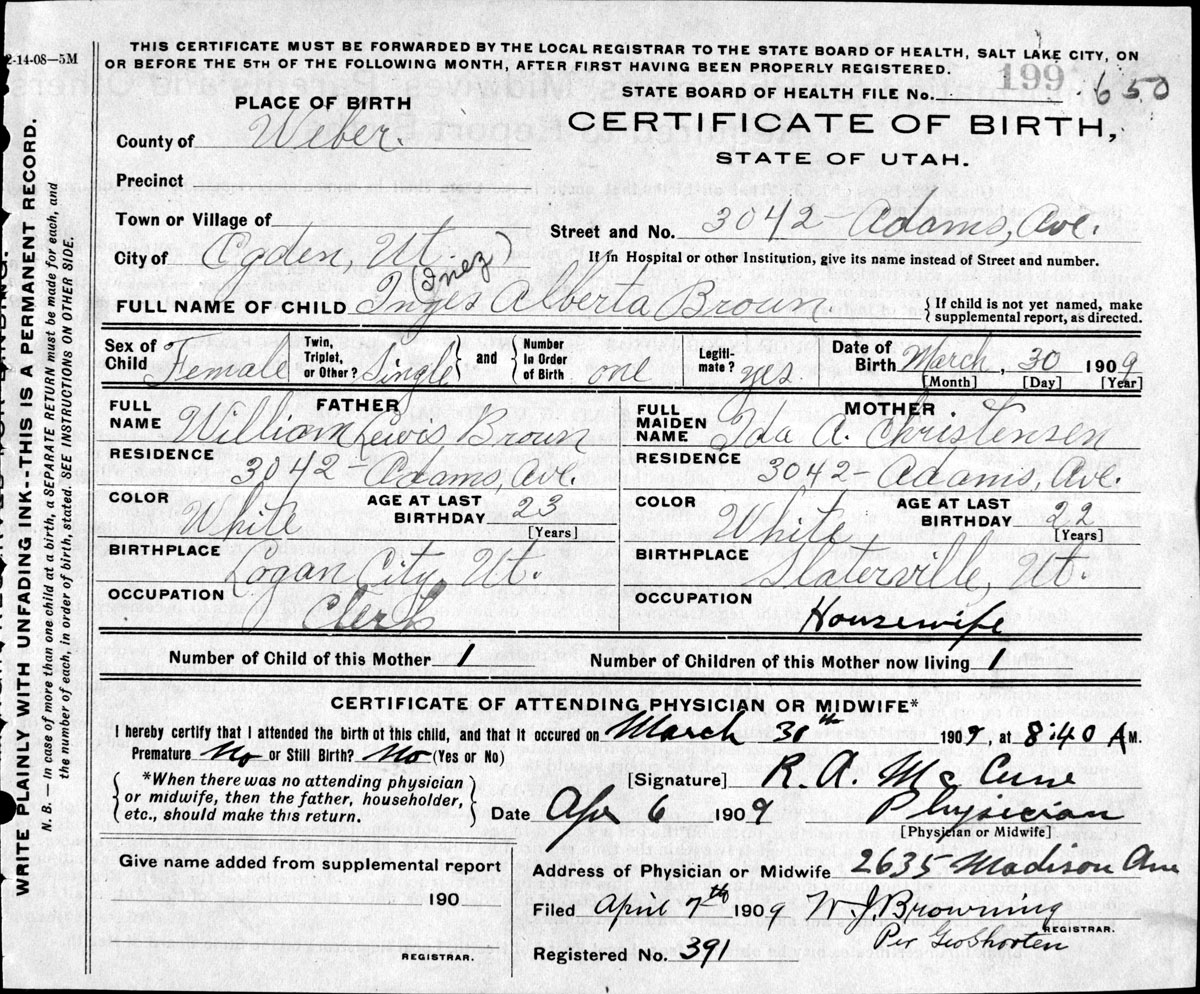 2-14-08—5M
THIS CERTIFICATE MUST BE FORWARDED BY THE LOCAL REGISTRAR TO THE STATE BOARD OF HEALTH, SALT LAKE CITY, ON
OR BEFORE THE 5TH OF THE FOLLOWING MONTH, AFTER FIRST HAVING BEEN PROPERLY REGISTERED.
STATE BOARD OF HEALTH FILE No. 199 650
PLACE OF BIRTH
CERTIFICATE OF BIRTH,
STATE OF UTAH.
County of Weber.
Precinct
Town or Village of
Street and No. 3042 - Adams, Ave.
City of Ogden, Ut.
If in Hospital or other Institution, give its name instead of Street and number.
(Inez)
FULL NAME OF CHILD Inges Alberta Brown.
{ If child is not yet named, make
supplemental report, as directed.
Sex of Child Female
Twin, Triplet, or Other? Single } and { Number In Order of Birth one
Legiti-mate? yes.
Date of Birth March, 30 1909
[Month] [Day] [Year]
FATHER
FULL NAME William Lewis Brown
RESIDENCE 3042 - Adams, Ave.
COLOR White
AGE AT LAST BIRTHDAY 23
[Years]
BIRTHPLACE Logan City, Ut.
OCCUPATION Clerk
MOTHER.
FULL MAIDEN NAME Ida A. Christensen
RESIDENCE 3042 - Adams, Ave.
COLOR White
AGE AT LAST BIRTHDAY 22
[Years]
BIRTHPLACE Slaterville, Ut.
OCCUPATION Housewife
Number of Child of this Mother 1
Number of Children of this Mother now living 1
CERTIFICATE OF ATTENDING PHYSICIAN OR MIDWIFE*
I hereby certify that I attended the birth of this child, and that it occured on March 30th 1909, at 8:40 A M.
Premature No or Still Birth? No (Yes or No)
*When there was no attending physician
or midwife, then the father, householder,
etc., should make this return.
[Signature] R. A. McCune
Date Apr 6 1909 Physician
[Physician or Midwife]
Give name added from supplemental report
190
REGISTRAR.
Address of Physician or Midwife 2635 Madison Ave
Filed April 7th 1909 W. J. Browning
REGISTRAR.
Per Geo Shorten
Registered No. 391
WRITE PLAINLY WITH UNFADING INK--THIS IS A PERMANENT RECORD.
N. B. — In case of more than one child at a birth, a SEPARATE RETURN must be made for each, and
the number of each, in order of birth, stated. SEE INSTRUCTIONS ON OTHER SIDE.